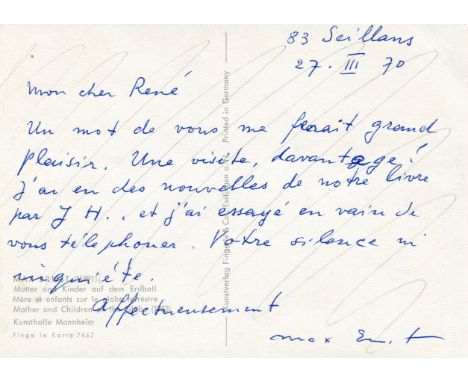 83 Seillans
27. III 70
Mon cher René
Un mot de vous me ferait grand
plaisir. Une visite, davantage!
J'ai eu des nouvelles de notre livre
par J H.. et j'ai essayé en vain de
vous téléphoner. Votre silence m'
inquiète.
Affectueusement
max Ernst
Mutter und Kinder auf dem Erdball
Mère et enfants sur le globe terrestre
Mother and Children
Kunsthalle Mannheim
Finge le Karte 7462
Printed in Germany
Kunstverlag